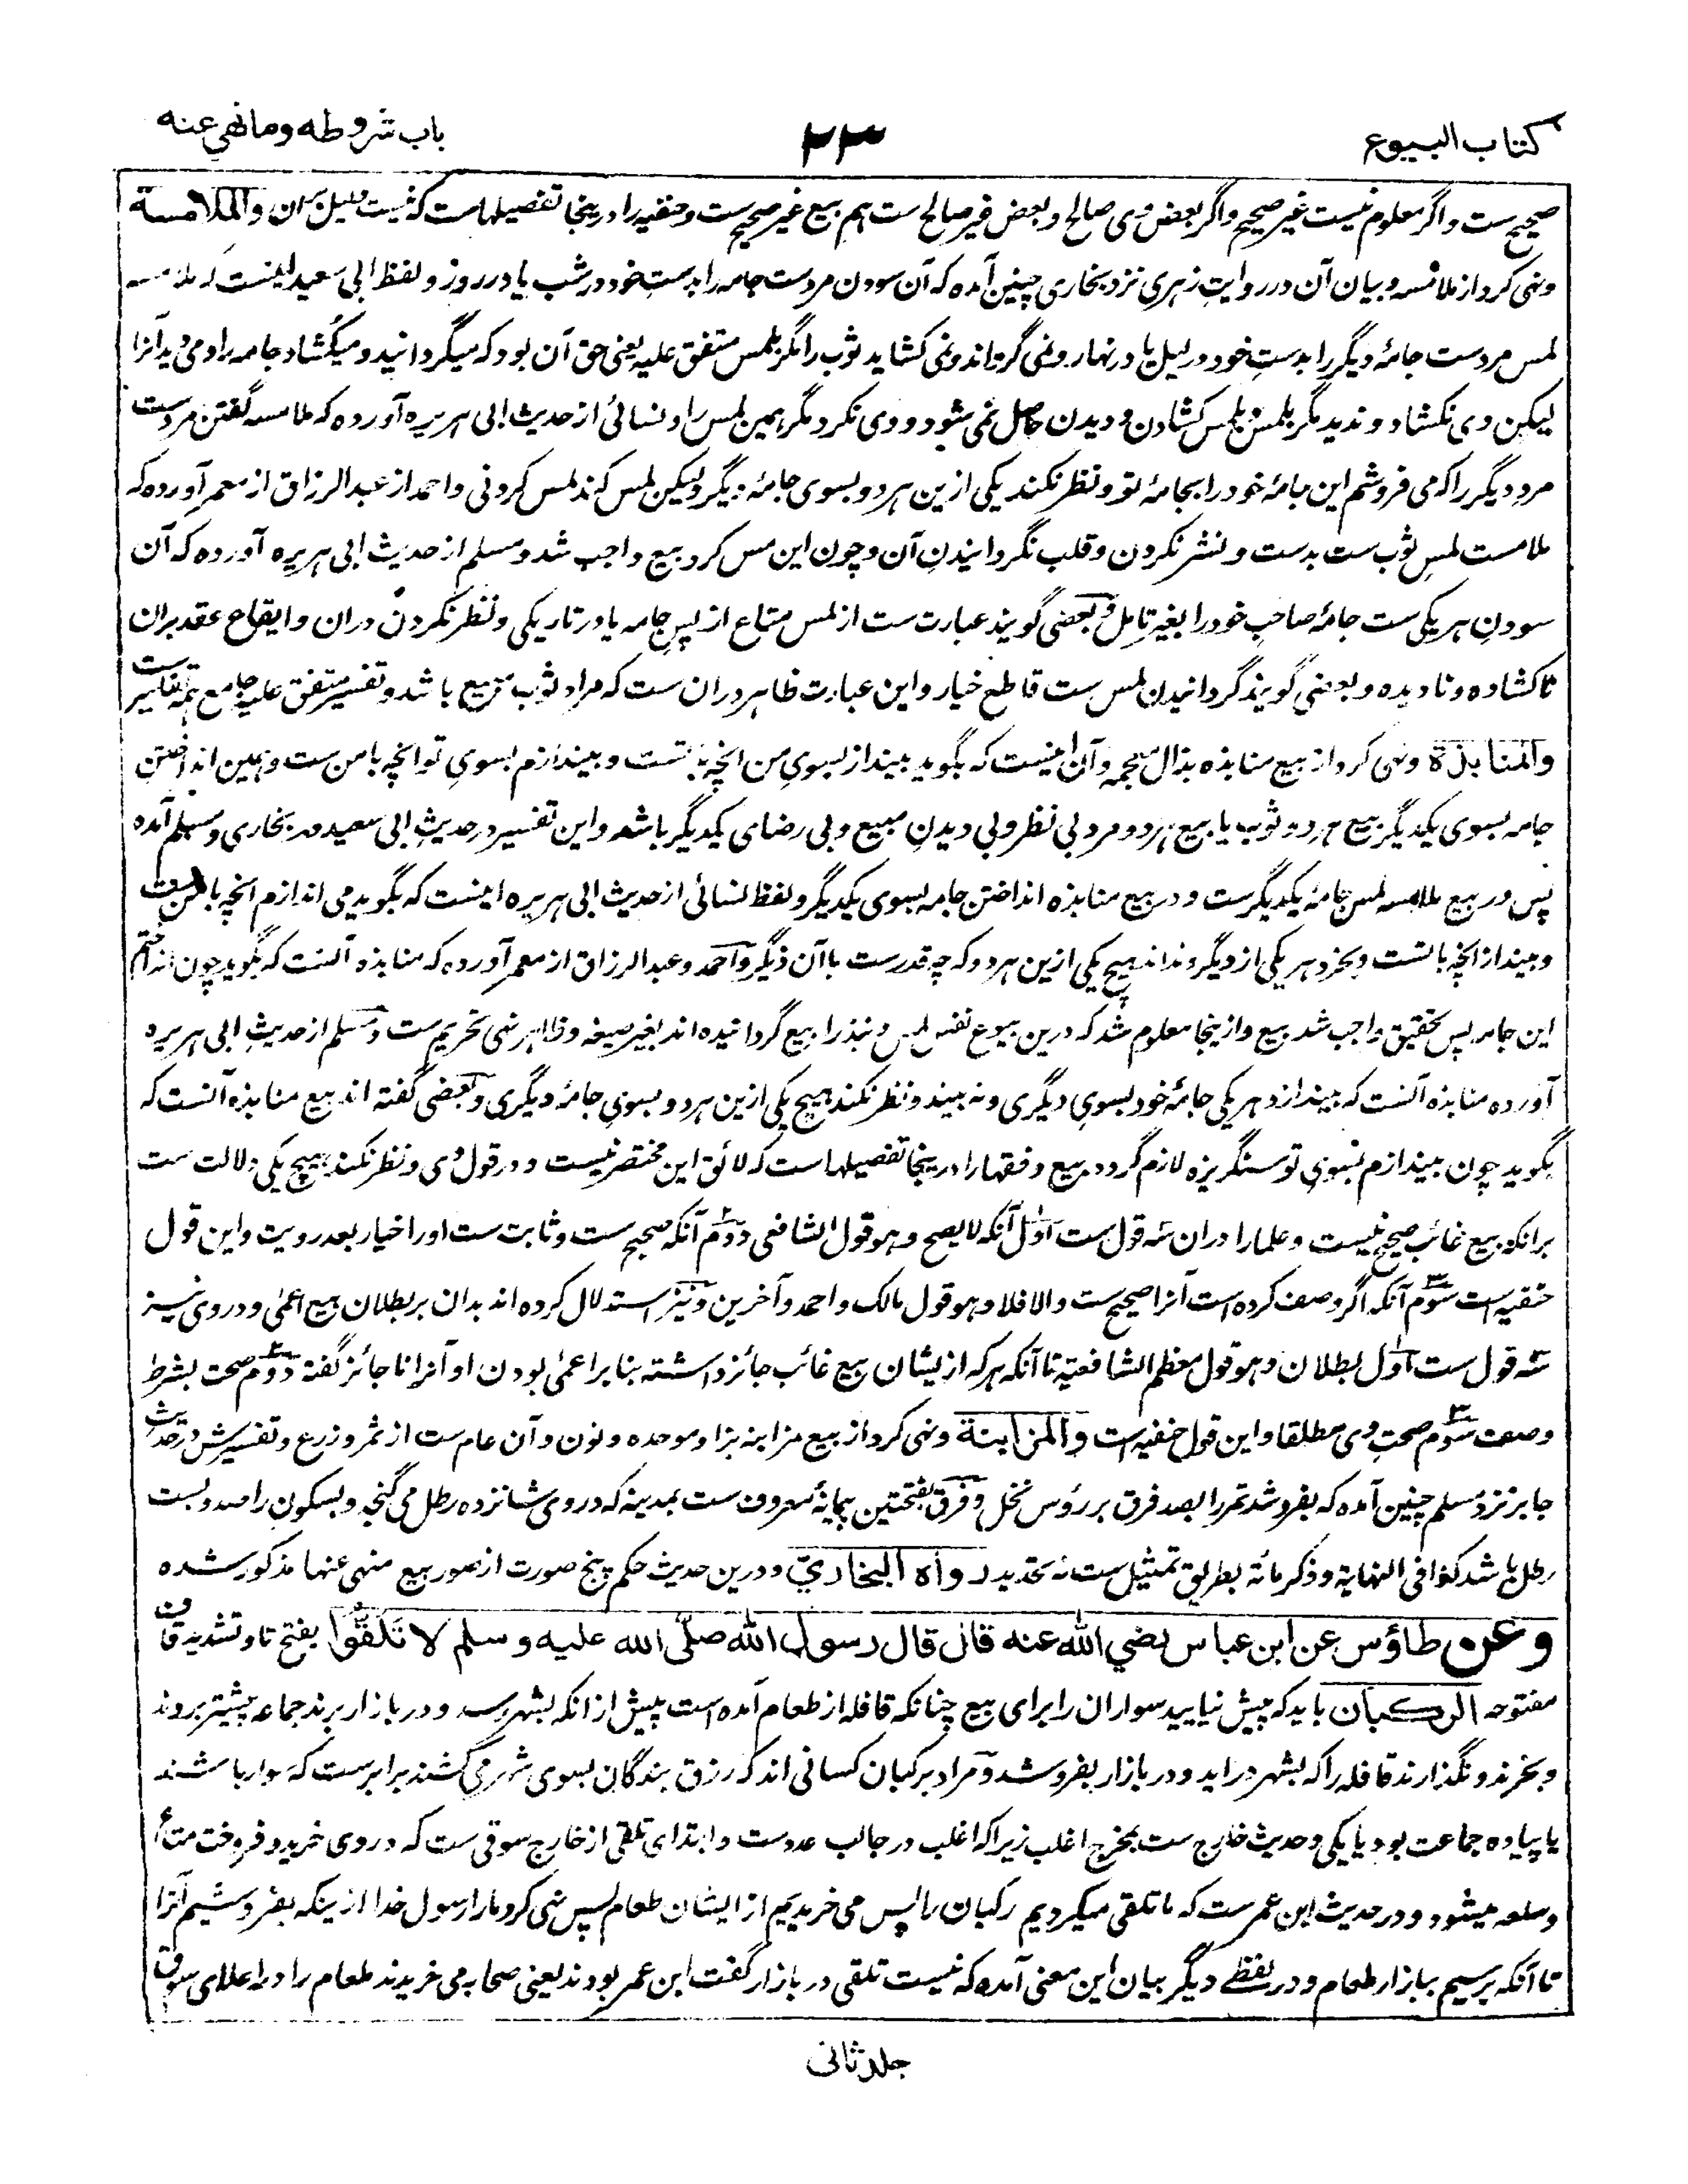 کتاب البیوع
۲۳
باب شروطه وما نهي عنه
صحیح ست و اگر معلوم نیست غیر صحیح و اگر بعض وی صالح و بعض غیر صالح ست هم بیع غیر صحیح ست و حنفیه را درینجا تفصیلها ست که نیست بران والملامسة
ونهی کرد از ملامسه و بیان آن در روایتِ زهری نزد بخاری چنین آمده که آن سودن مردست جامه را بدستِ خود در شب یا در روز و لفظ ابی سعید اینست که ملامسه
لمس مردست جامهٔ دیگر را بدستِ خود در لیل یا در نهار و نمی گرداند و نمی کشاید ثوب را مگر بلمس متفق علیه یعنی حق آن بود که میگردانید و میکُشاد جامه را و می دید آنرا
لیکن وی نکشاد و ندید مگر بلمس و بلمس کشادن و دیدن حاصل نمی شود و وی نکرد مگر همین لمس را و نسائی از حدیث ابی هریره آورده که ملامسه گفتن مردست
مرد دیگر را که می فروشم این جامهٔ خود را بجامهٔ تو و نظر نکند یکی ازین هر دو بسوی جامهٔ دیگر ولیکن لمس کند لمس کردنی و احمد از عبد الرزاق از معمر آورده که
ملامست لمسِ ثوب ست بدست و نشر نکردن و قلب نگردانیدنِ آن و چون این مس کرد بیع واجب شد و مسلم از حدیث ابی هریره آورده که آن
سودنِ هر یکی ست جامهٔ صاحب خود را بغیر تامل و بعضی گویند عبارت ست از لمس متاع از پسِ جامه یا در تاریکی و نظر نکردن دران و ایقاع عقد بران
ناکشاده و نادیده و بعضی گویند گردانیدن لمس ست قاطع خیار و این عبارت ظاهر دران ست که مراد ثوب مبیع باشد و تفسیر متفق علیه جامع همه تفاسیر ست
والمنابذة ونهی کرد از بیع منابذه بذال معجمه و آن اینست که بگوید بینداز بسوی من انچه با تست و بیندازم بسوی تو انچه با من ست و همین انداختن
جامه بسوی یکدیگر بیع هر دو ثوب یا بیع هر دو مرد بی نظر و بی دیدنِ مبیع و بی رضای یکدیگر باشد و این تفسیر در حدیثِ ابی سعید در بخاری و مسلم آمده
پس در بیع ملامسه لمس جامهٔ یکدیگرست و در بیع منابذه انداختن جامه بسوی یکدیگر و لفظ نسائی از حدیث ابی هریره اینست که بگوید می اندازم انچه با من ست
و بینداز انچه با تست و بخرد هر یکی از دیگر و نداند هیچ یکی ازین هر دو که چه قدرست با آن دیگر و احمد و عبد الرزاق از معمر آورده که منابذه آنست که بگوید چون اندازم
این جامه پس بتحقیق واجب شد بیع و ازینجا معلوم شد که درین بیوع نفس لمس و نبذ را بیع گردانیده اند بغیر صیغه و ظاهر نهی تحریم ست و مسلم از حدیثِ ابی هریره
آورده منابذه آنست که بیندازد هر یکی جامهٔ خود بسوی دیگری و نه بیند و نظر نکند هیچ یکی ازین هر دو بسوی جامهٔ دیگری و بعضی گفته اند بیع منابذه آنست که
بگوید چون بیندازم بسوی تو سنگریزه لازم گردد بیع و فقها را درینجا تفصیلها ست که لائق این مختصر نیست و در قول وی و نظر نکند هیچ یکی دلالت ست
برانکه بیع غائب صحیح نیست و علما را دران سه قول ست اول آنکه لا یصح وهو قول الشافعی دوم آنکه صحیح ست و ثابت ست او را خیار بعد رویت و این قول
حنفیه است سوم آنکه اگر وصف کرده است آنرا صحیح ست والا فلا وهو قول مالک واحمد وآخرین و نیز استدلال کرده اند بدان بر بطلان بیع اعمیٰ و در وی نیز
سه قول ست اول بطلان وهو قول معظم الشافعیة تا آنکه هر که ازیشان بیع غائب جائز داشته بنا بر اعمیٰ بودن او آنرا ناجائز گفته دوم صحت بشرط
وصف سوم صحتِ وی مطلقا و این قول حنفیه است والمزابنة ونهی کرد از بیع مزابنه بزا و موحده و نون و آن عام ست از ثمر و زرع و تفسیرش در حدیث
جابر نزد مسلم چنین آمده که بفروشد تمر را بصد فرق بر رؤس نخل و فرق بفتحتین پیمانهٔ معروف ست بمدینه که در وی شانزده رطل می گنجد و بسکون را صد و بست
رطل باشد کذا فی النهایة و ذکر مائة بطریق تمثیل ست نه تحدید رواه البخاري و درین حدیث حکم پنج صورت از صور بیع منهی عنها مذکور شده
وعن طاؤس عن ابن عباس رضي الله عنه قال قال رسول الله صلی الله علیه وسلم لا تلقوا بفتح تا و تشدید قاف
مفتوحه الركبان باید که پیش نیایید سواران را برای بیع چنانکه قافله از طعام آمده است پیش از انکه بشهر رسد و در بازار برند جماعه پیشتر بروند
و بخرند و نگذارند قافله را که بشهر دراید و در بازار بفروشد و مراد بر کبان کسانی اند که رزق بندگان بسوی شهر می کشند برابرست که سوار باشند
یا پیاده جماعت بود یا یکی و حدیث خارج ست بمخرج اغلب زیرا که اغلب در جالب عددست و ابتدای تلقی از خارج سوقی ست که در وی خرید و فروخت متاع
و سلعه میشود و در حدیث ابن عمرست که ما تلقی میکردیم رکبان را پس می خریدیم از ایشان طعام پس نهی کرد ما را رسول خدا ازینکه بفروشیم آنرا
تا آنکه برسیم ببازار طعام و در لفظے دیگر بیان این معنی آمده که نیست تلقی در بازار گفت ابن عمر بودند یعنی صحابه می خریدند طعام را در اعلای سوق
جلد ثانی